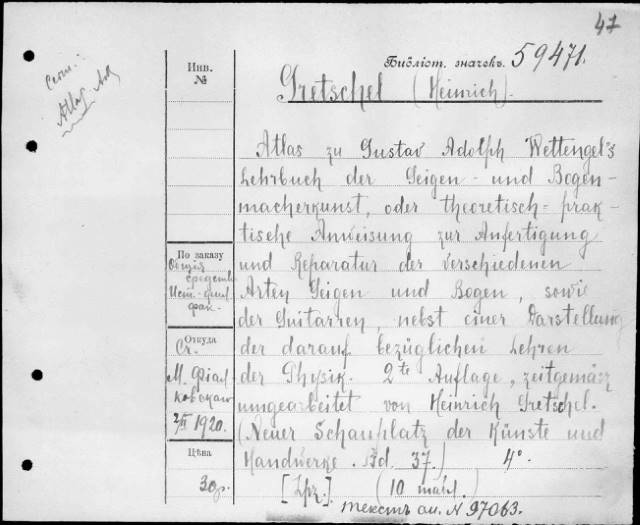 47
Библіот. значекъ. 59471.
Gretschel (Heinrich).
Atlas zu Gustav Adolph Wettengel's
Lehrbuch der Geigen- und Bogen-
macherkunst, oder theoretisch=prak-
tische Anweisung zur Anfertigung
und Reparatur der verschiedenen
Arten Geigen und Bogen, sowie
der Guitarren, nebst einer Darstellung
der darauf bezüglichen Lehren
der Physik. 2te Auflage, zeitgemäss
umgearbeitet von Heinrich Gretschel.
(Neuer Schauplatz der Künste und
Handwerke. Bd. 37.) 4°.
[Lpz.]. (10 табл.)
текстъ см. N 97063.
Инв.
№
По заказу
Общія
средства
Ист.-фил.
фак.
Откуда
Ст.
М. Фіал
ковскаго
2/II 1920.
Цѣна
30р.
Atlas